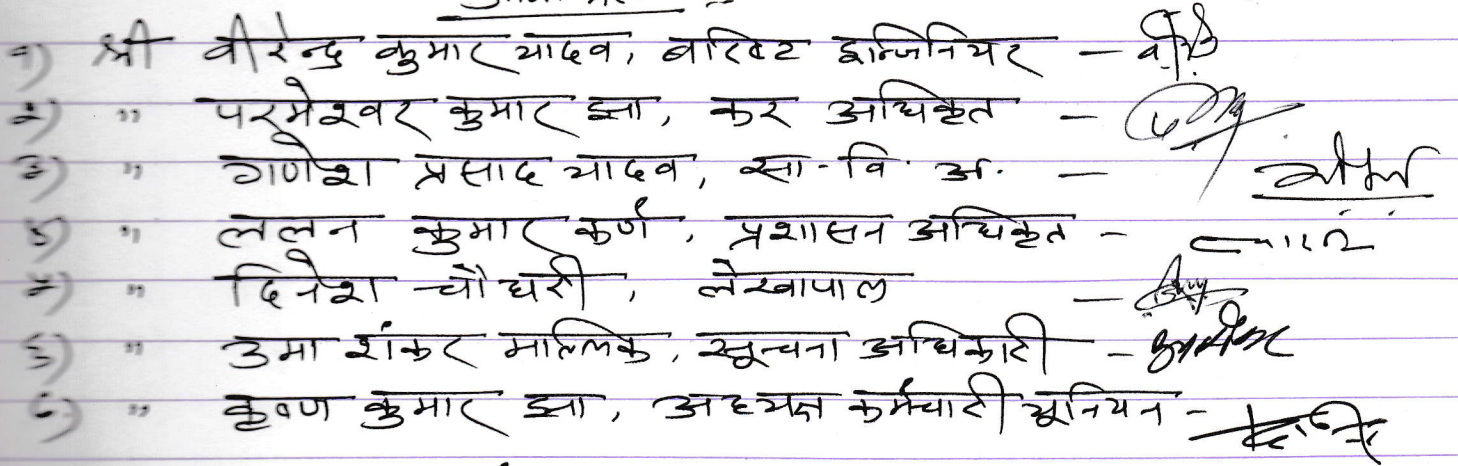 १) श्री वीरेन्द्र कुमार यादव, बरिष्ट इन्जिनियर -
२) " परमेश्वर कुमार झा, कर अधिकृत -
३) " गणेश प्रसाद यादव, सा. वि. अ. -
४) " ललन कुमार कर्ण, प्रशासन अधिकृत -
५) " दिनेश चौधरी, लेखापाल -
६) " उमा शंकर मल्लिक, सूचना अधिकारी -
७) " कृष्ण कुमार झा, अध्यक्ष कर्मचारी यूनियन -